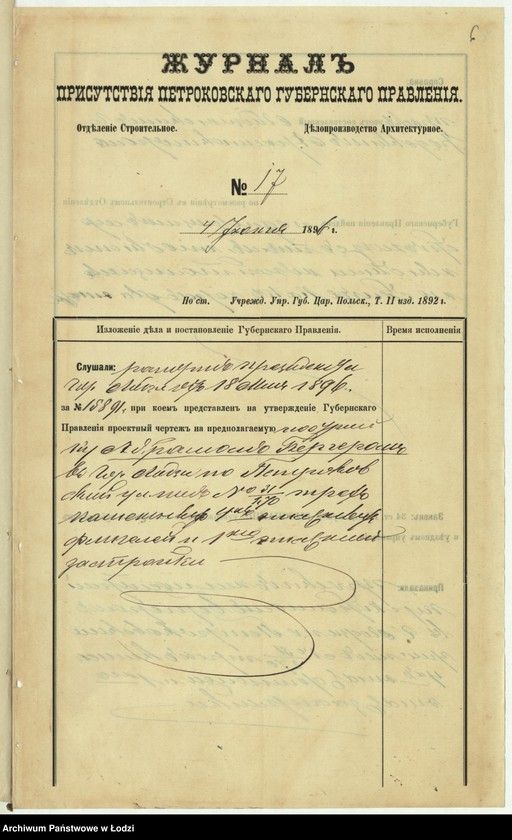 6
ЖУРНАЛЪ
ПРИСУТСТВІЯ ПЕТРОКОВСКАГО ГУБЕРНСКАГО ПРАВЛЕНІЯ.
Отдѣленіе Строительное. Дѣлопроизводство Архитектурное.
№ 17
4 Іюня 1896 г.
По ст. Учрежд. Упр. Губ. Цар. Польск., Т. II изд. 1892 г.
Изложеніе дѣла и постановленіе Губернскаго Правленія. Время исполненія
Слушали: рапортъ президента
гор. Лодзи отъ 18 Мая 1896 г.
за № 15891, при коемъ представленъ на утвержденіе Губернскаго
Правленія проектный чертежъ на предполагаемую
Абрамомъ Бергеромъ
въ гор. Лодзи по Петроков
ской улицѣ № трехъ
каменныхъ этажныхъ
флигелей и 1 этажной
застройки
Archiwum Państwowe w Łodzi